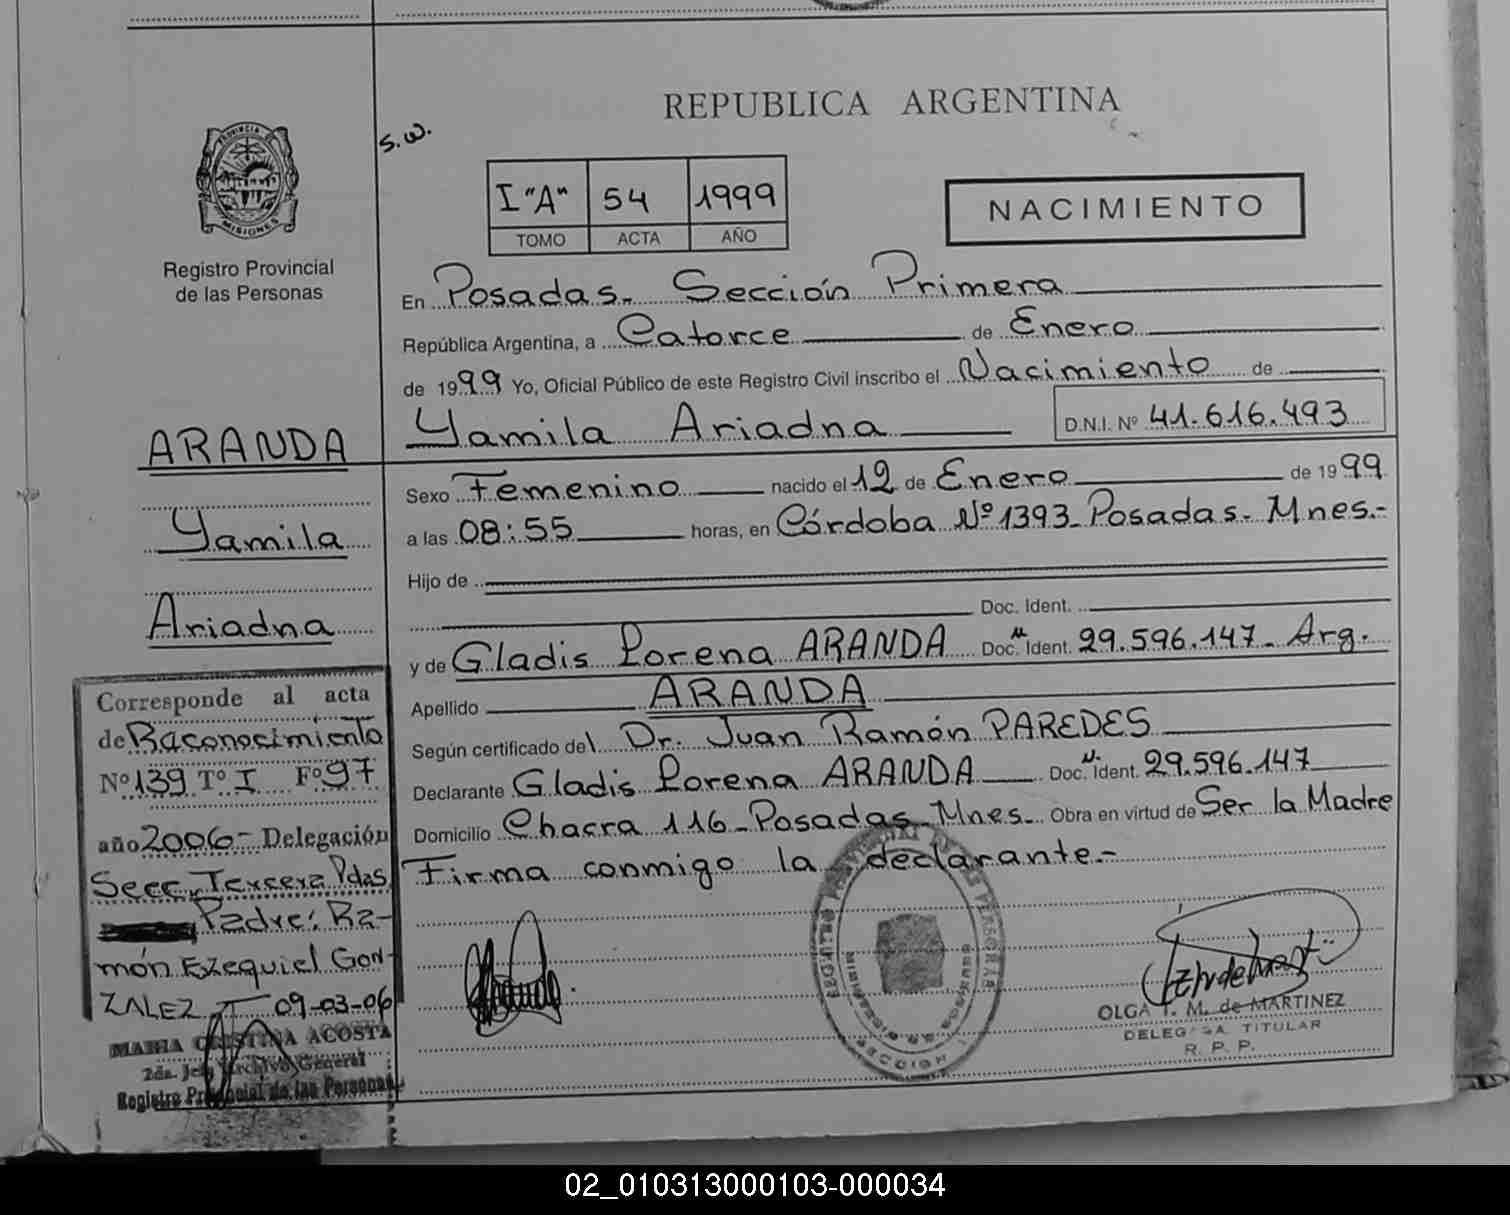 REPUBLICA ARGENTINA
S.W.
I "A" 54 1999
TOMO ACTA AÑO
NACIMIENTO
PROVINCIA DE
MISIONES
Registro Provincial
de las Personas
En Posadas. Sección Primera
República Argentina, a Catorce de Enero
de 1999 Yo, Oficial Público de este Registro Civil inscribo el Nacimiento de
Yamila Ariadna D.N.I. Nº 41.616.493
Sexo Femenino nacido el 12 de Enero de 1999
a las 08:55 horas, en Córdoba Nº 1393-Posadas-Mnes.-
Hijo de
Doc. Ident.
y de Gladis Lorena ARANDA Doc. Ident. 29.596.147- Arg.
Apellido ARANDA
Según certificado del Dr. Juan Ramón PAREDES
Declarante Gladis Lorena ARANDA Doc. Ident. 29.596.147
Domicilio Chacra 116-Posadas-Mnes- Obra en virtud de Ser la Madre
Firma conmigo la declarante.-
ARANDA
Yamila
Ariadna
Corresponde al acta
de Raconocimiento
Nº 139 Tº I Fº 97
año 2006- Delegación
Secc. Tercera Pdas
Padre: Ra-
món Ezequiel Gon-
ZALEZ 09-03-06
MARIA CRISTINA ACOSTA
2da. Jefe Archivo General
Registro Provincial de las Personas
OLGA I. M. de MARTINEZ
DELEGADA TITULAR
R. P. P.
SECCION 1
02_010313000103-000034